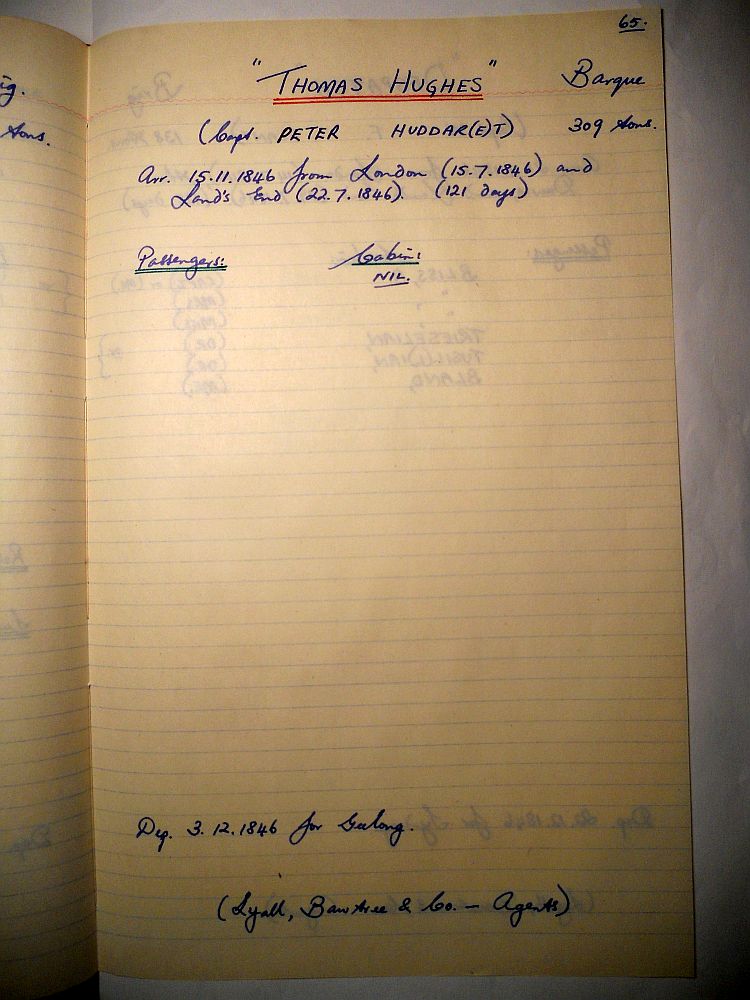 65.
"THOMAS HUGHES" Barque
(Capt. PETER HUDDAR(E)T) 309 tons.
Arr. 15.11.1846 from London (15.7.1846) and
Land's End (22.7.1846). (121 days)
Passengers: Cabin:
NIL.
Dep. 3.12.1846 for Geelong.
(Lyall, Bawtree & Co. – Agents)
tons.